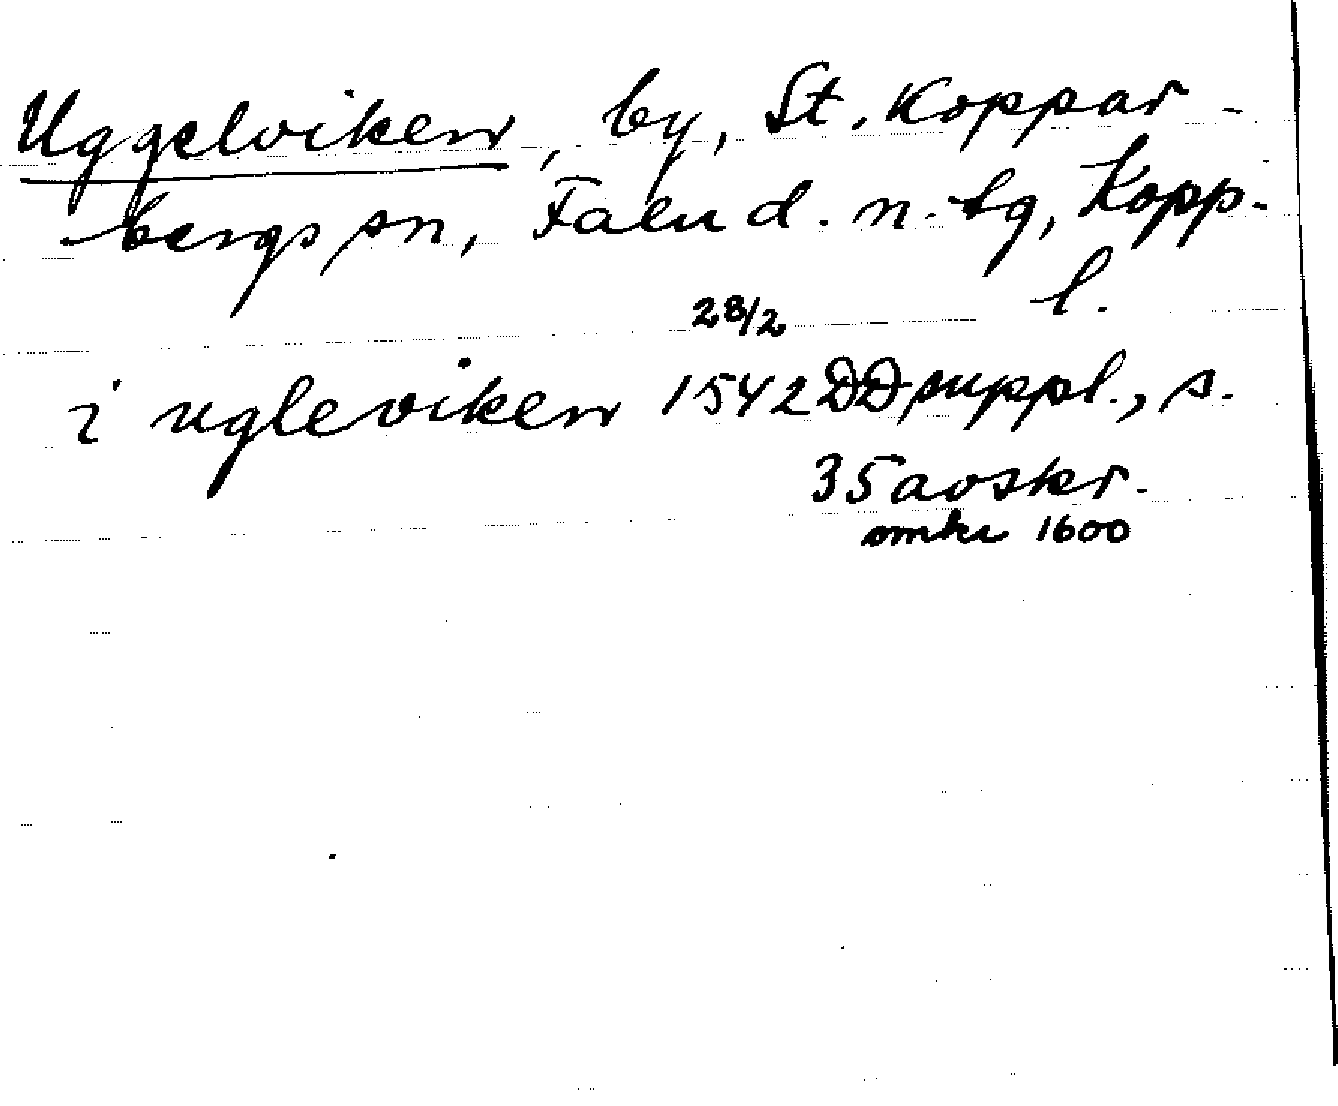 Uggelviken, by, St. Koppar-
bergs sn, Falu d. n. tg, Kopp.
l.
28/2
i ugleviken 1542 DD suppl., s.
35 avskr.
omkr 1600